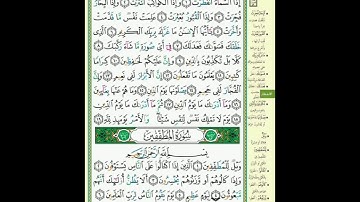 إِذَا ٱلسَّمَآءُ ٱنفَطَرَتۡ ١ وَإِذَا ٱلۡكَوَاكِبُ ٱنتَثَرَتۡ ٢ وَإِذَا ٱلۡبِحَارُ
فُجِّرَتۡ ٣ وَإِذَا ٱلۡقُبُورُ بُعۡثِرَتۡ ٤ عَلِمَتۡ نَفۡسٞ مَّا قَدَّمَتۡ
وَأَخَّرَتۡ ٥ يَٰٓأَيُّهَا ٱلۡإِنسَٰنُ مَا غَرَّكَ بِرَبِّكَ ٱلۡكَرِيمِ ٦ ٱلَّذِي
خَلَقَكَ فَسَوَّىٰكَ فَعَدَلَكَ ٧ فِيٓ أَيِّ صُورَةٖ مَّا شَآءَ رَكَّبَكَ ٨
كَلَّا بَلۡ تُكَذِّبُونَ بِٱلدِّينِ ٩ وَإِنَّ عَلَيۡكُمۡ لَحَٰفِظِينَ ١٠ كِرَامٗا
كَٰتِبِينَ ١١ يَعۡلَمُونَ مَا تَفۡعَلُونَ ١٢ إِنَّ ٱلۡأَبۡرَارَ لَفِي نَعِيمٖ ١٣ وَإِنَّ
ٱلۡفُجَّارَ لَفِي جَحِيمٖ ١٤ يَصۡلَوۡنَهَا يَوۡمَ ٱلدِّينِ ١٥ وَمَا هُمۡ عَنۡهَا بِغَآئِبِينَ
١٦ وَمَآ أَدۡرَىٰكَ مَا يَوۡمُ ٱلدِّينِ ١٧ ثُمَّ مَآ أَدۡرَىٰكَ مَا يَوۡمُ ٱلدِّينِ
١٨ يَوۡمَ لَا تَمۡلِكُ نَفۡسٞ لِّنَفۡسٖ شَيۡـٔٗاۖ وَٱلۡأَمۡرُ يَوۡمَئِذٖ لِّلَّهِ ١٩
سُورَةُ ٱلۡمُطَفِّفِينَ
بِسۡمِ ٱللَّهِ ٱلرَّحۡمَٰنِ ٱلرَّحِيمِ
وَيۡلٞ لِّلۡمُطَفِّفِينَ ١ ٱلَّذِينَ إِذَا ٱكۡتَالُواْ عَلَى ٱلنَّاسِ يَسۡتَوۡفُونَ ٢
وَإِذَا كَالُوهُمۡ أَو وَّزَنُوهُمۡ يُخۡسِرُونَ ٣ أَلَا يَظُنُّ أُوْلَٰٓئِكَ أَنَّهُم
مَّبۡعُوثُونَ ٤ لِيَوۡمٍ عَظِيمٖ ٥ يَوۡمَ يَقُومُ ٱلنَّاسُ لِرَبِّ ٱلۡعَٰلَمِينَ ٦